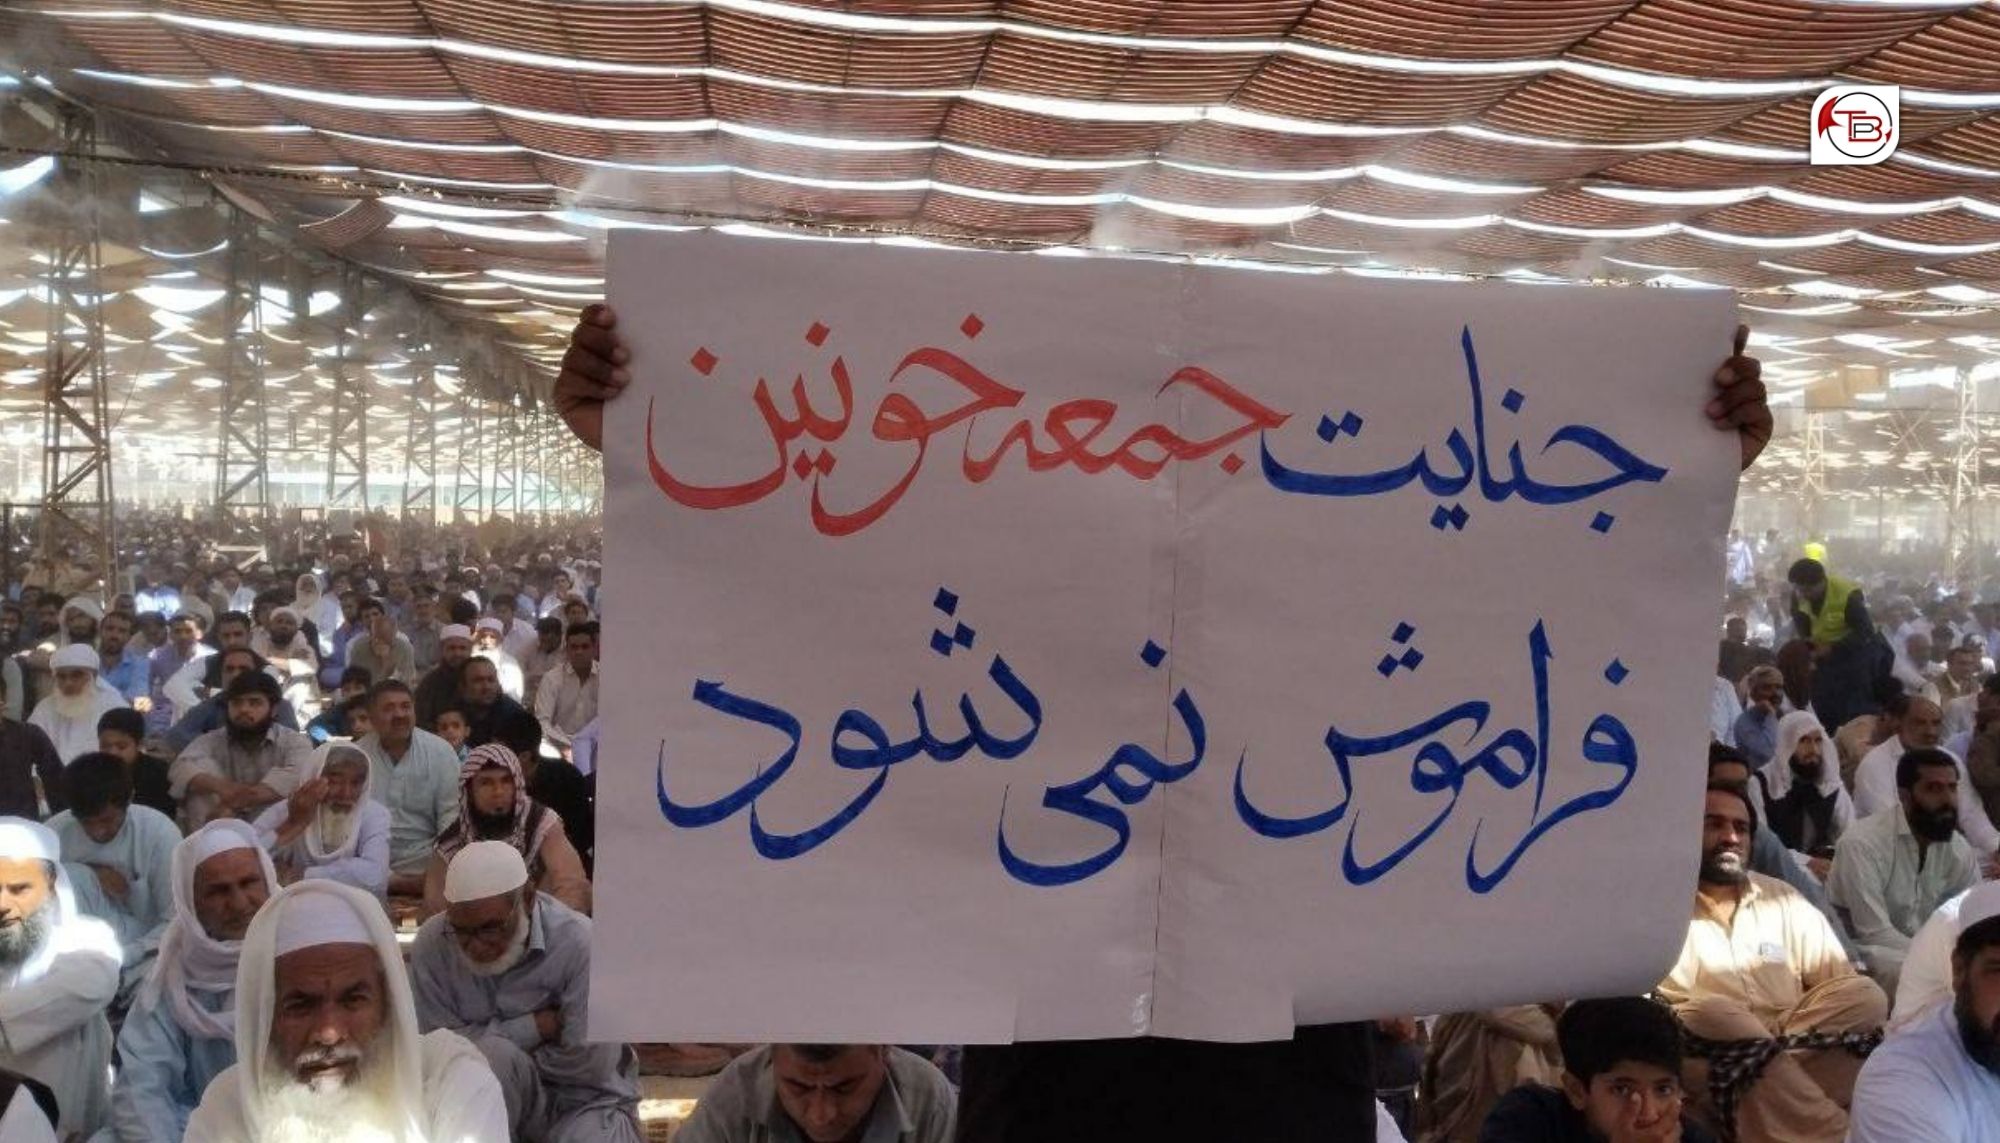 TPB
جنایت جمعه خونین
فراموش نمی شود